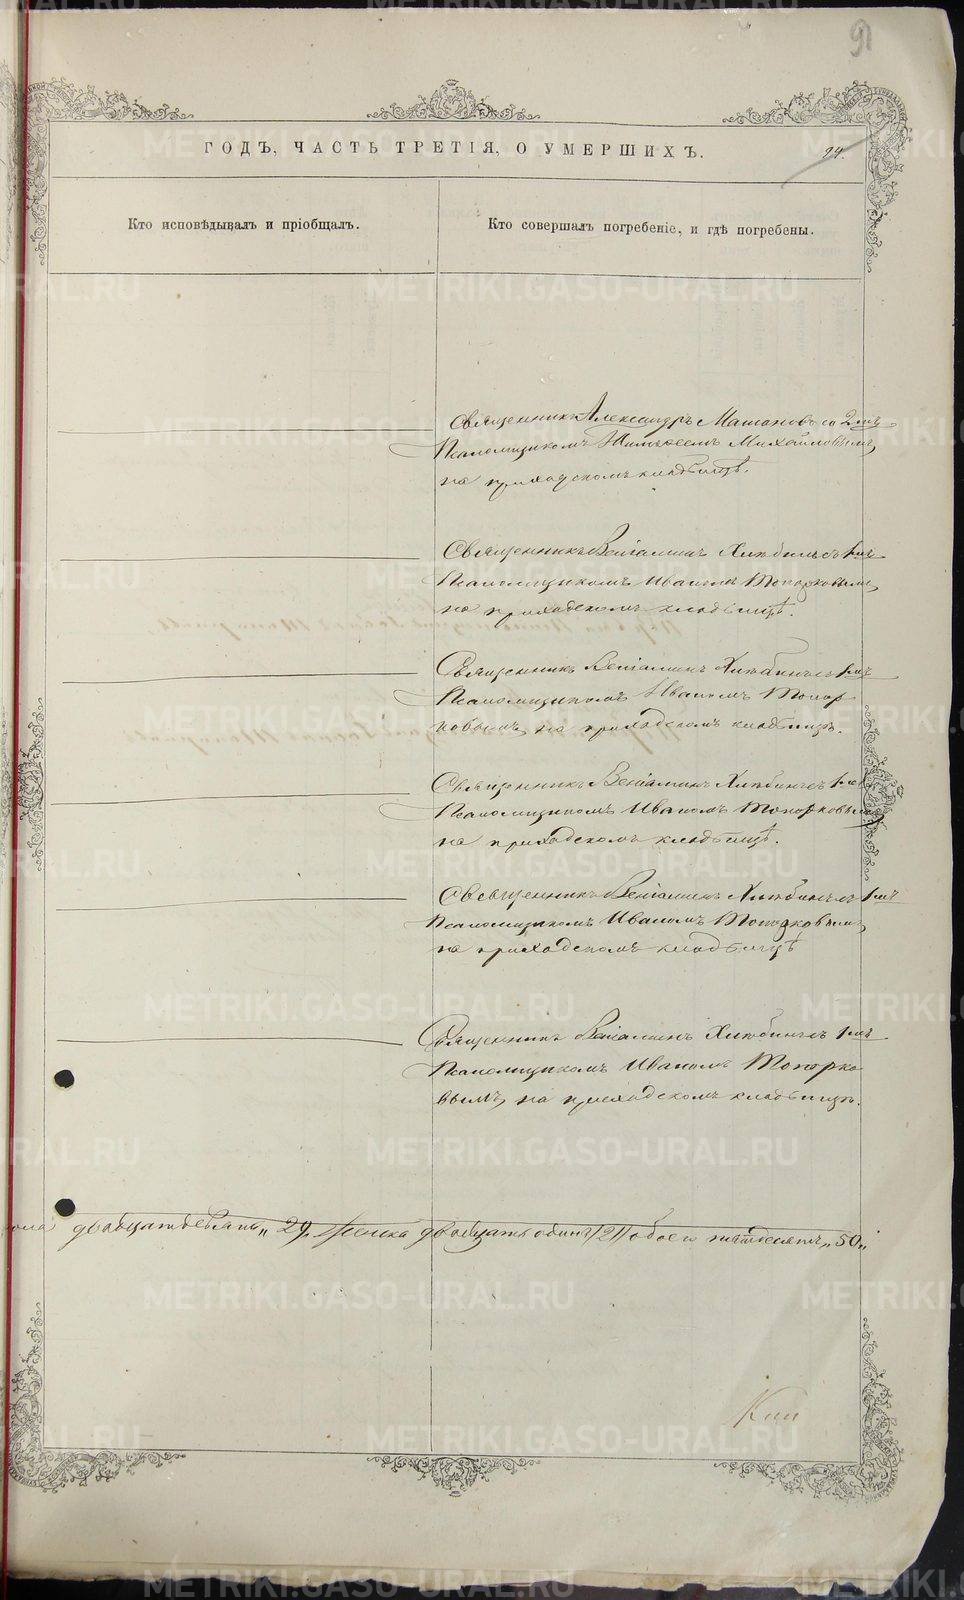 91
ГОДЪ, ЧАСТЬ ТРЕТІЯ, О УМЕРШИХЪ.
94.
Кто исповѣдывалъ и пріобщалъ.
Кто совершалъ погребеніе, и гдѣ погребены.
Священникъ Александръ Машановъ со 2мъ
Псаломщикомъ Михайловымъ,
на приходскомъ кладбищѣ.
Священникъ Веніаминъ Хлѣбинъ съ 1мъ
Псаломщикомъ Иваномъ Топорковымъ,
на приходскомъ кладбищѣ.
Священникъ Веніаминъ Хлѣбинъ съ 1мъ
Псаломщикомъ Иваномъ Топор
ковымъ, на приходскомъ кладбищѣ.
Священникъ Веніаминъ Хлѣбинъ съ 1мъ
Псаломщикомъ Иваномъ Топорковымъ
на приходскомъ кладбищѣ.
Священникъ Веніаминъ Хлѣбинъ съ 1мъ
Псаломщикомъ Иваномъ Топорковымъ,
на приходскомъ кладбищѣ
Священникъ Веніаминъ Хлѣбинъ съ 1мъ
Псаломщикомъ Иваномъ Топорко
вымъ, на приходскомъ кладбищѣ.
пола двадцать девять „29„ женска двадцать одинъ /21/ обоего пятьдесятъ „50„
METRIKI.GASO-URAL.RU